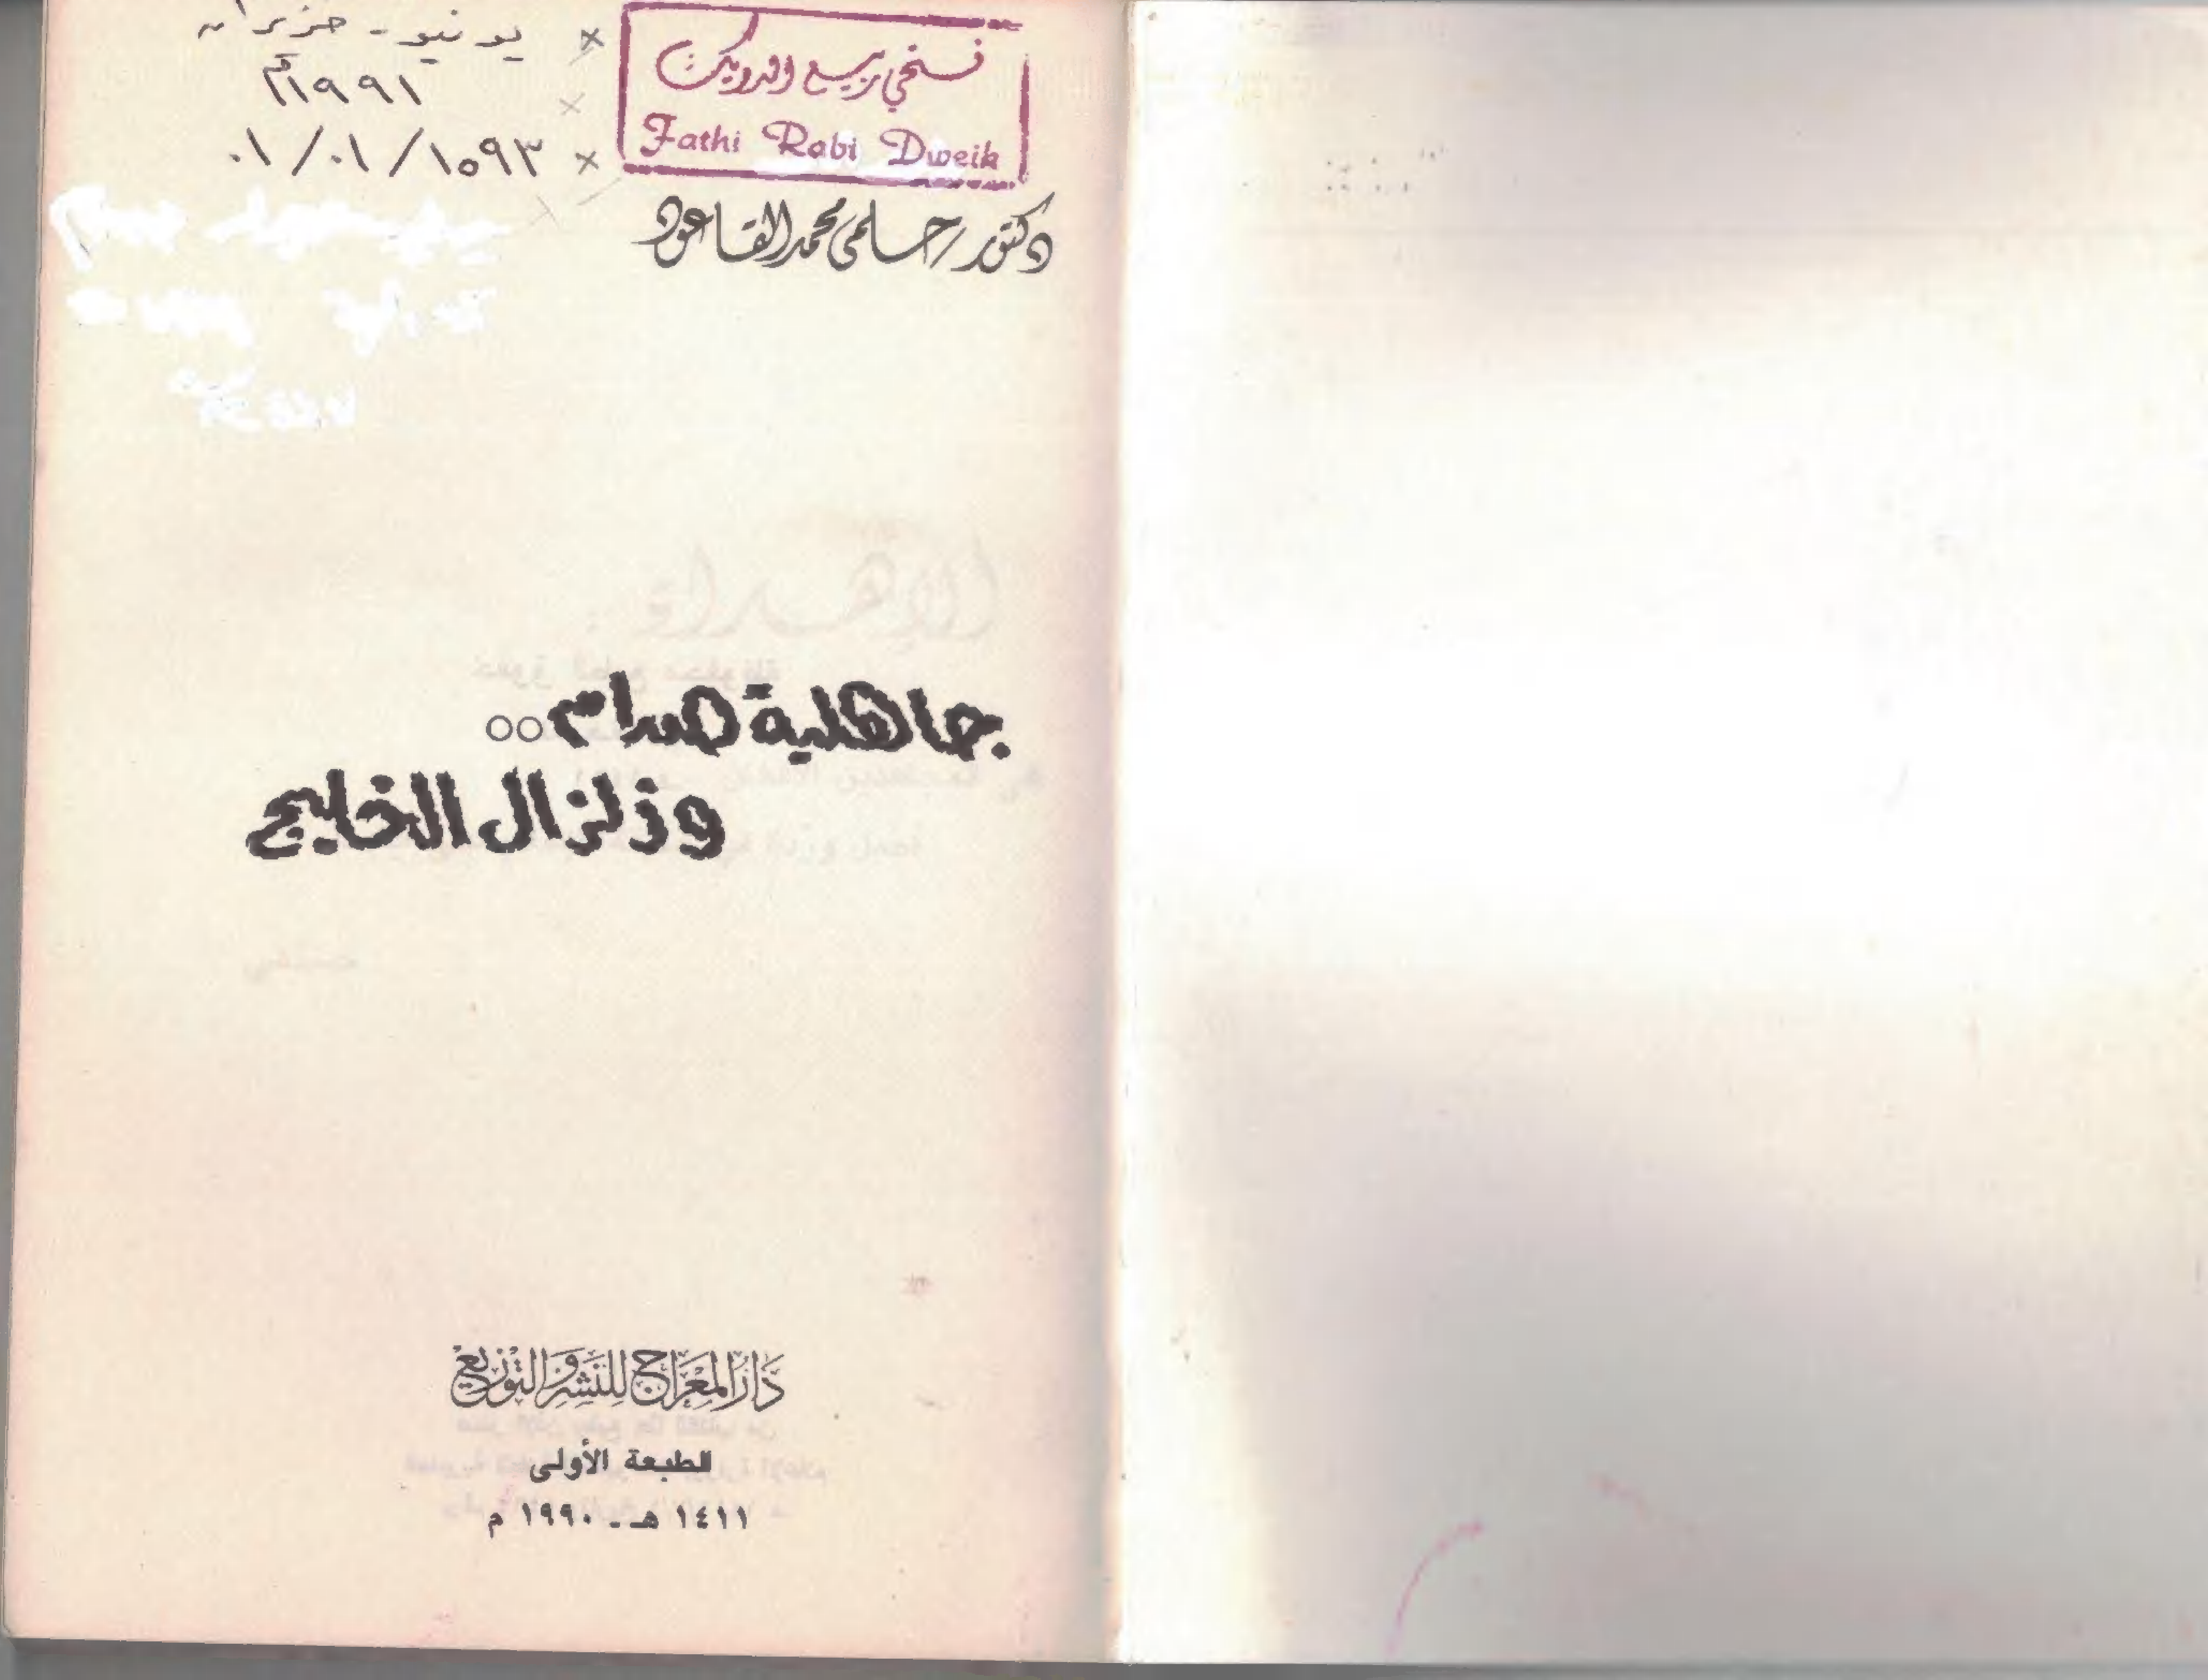 يونيو - حزيران
١٩٩١م
٠١/٠١/١٥٩٣
فتحي ربيع الدويك
Fathi Rabi Dweik
دكتور/حلمى محمد القاعود
جاهلية صدام..
وزلزال الخليج
دَارُ المِعْرَاج لِلنَشِر وَالتَوْزيع
الطبعة الأولى
١٤١١ هـ - ١٩٩٠ م